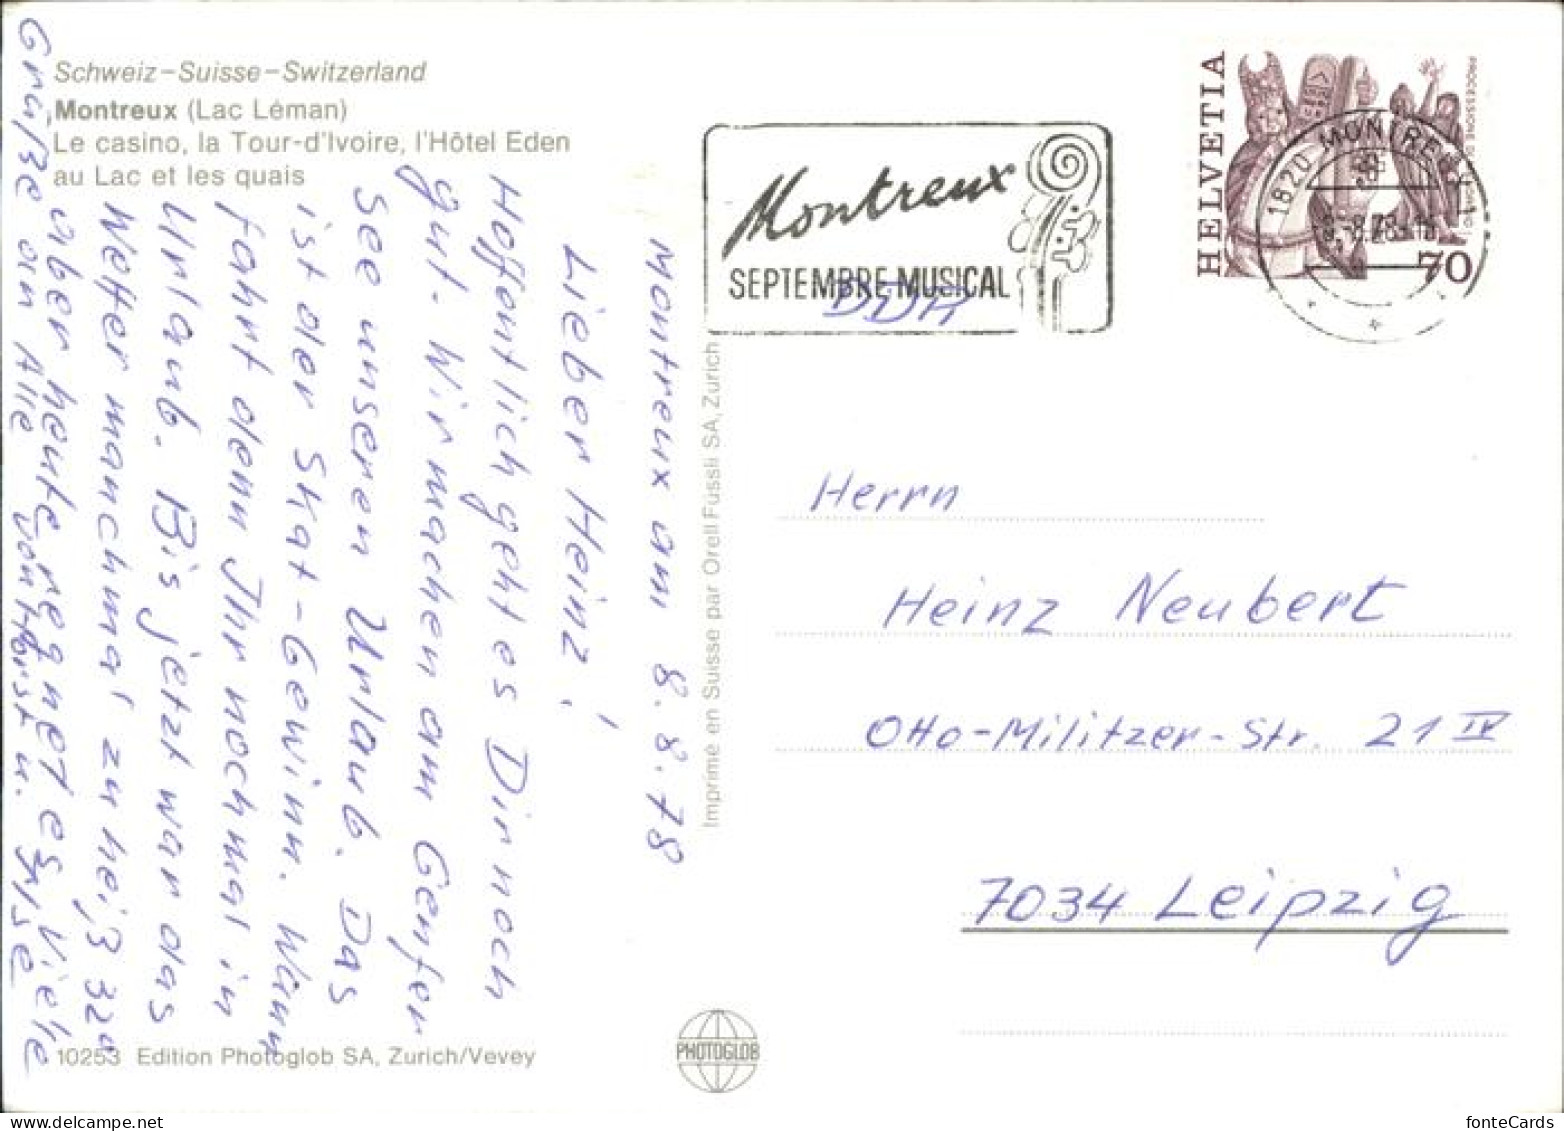 Schweiz–Suisse–Switzerland
Montreux (Lac Léman)
Le casino, la Tour-d'Ivoire, l'Hôtel Eden
au Lac et les quais
Montreux am 8.8.78
Lieber Heinz!
Hoffentlich geht es Dir noch
gut. Wir machen am Genfer
See unseren Urlaub. Das
ist der Skat-Gewinn. Wann
fahrt denn Ihr nochmal in
Urlaub. Bis jetzt war das
Wetter manchmal zu heiß 32°
aber heute regnet es. Viele
Grüße an Alle von Horst u.
10253 Edition Photoglob SA, Zurich/Vevey
Imprimé en Suisse par Orell Füssli SA, Zurich
PHOTOGLOB
Montreux
SEPTEMBRE MUSICAL
DDR
HELVETIA
70
1820 MONTREUX
Herrn
Heinz Neubert
Otto-Militzer-Str. 21 IV
7034 Leipzig
fonteCards